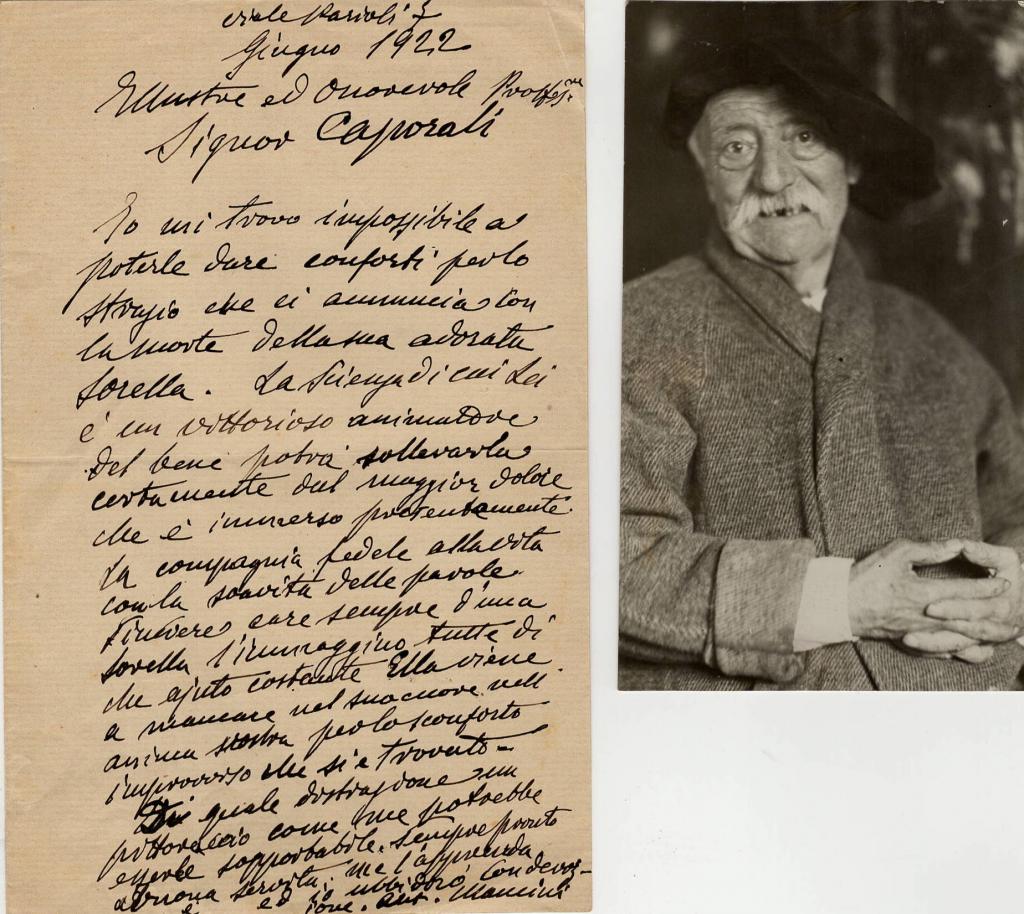 viale Parioli 7
Giugno 1922
Illustre ed Onorevole Profess.re
Signor Caporali
Io mi trovo impossibile a
poterle dare conforti perlo
strazio che ci annuncia con
la morte della sua adorata
sorella. La Scienza di cui Lei
é un vittorioso animatore
del bene potrà sollevarla
certamente dal maggior dolore
che é immerso presentamente.
La compagnia fedele alla vita
con la soavità delle parole
sincere care sempre d'una
sorella l'immaggino tutte di
che ajuto costante Ella viene
a mancare nel suo cuore nell
anima perlo sconforto
improvviso che si é trovato -
Di quale distrazione un
pittoraccio come me potrebbe
essere sopportabile. Sempre pronto
a buona servitù. me l'apprenda
ed io ubbidirò con devoz-
ione. Ant. Mancini